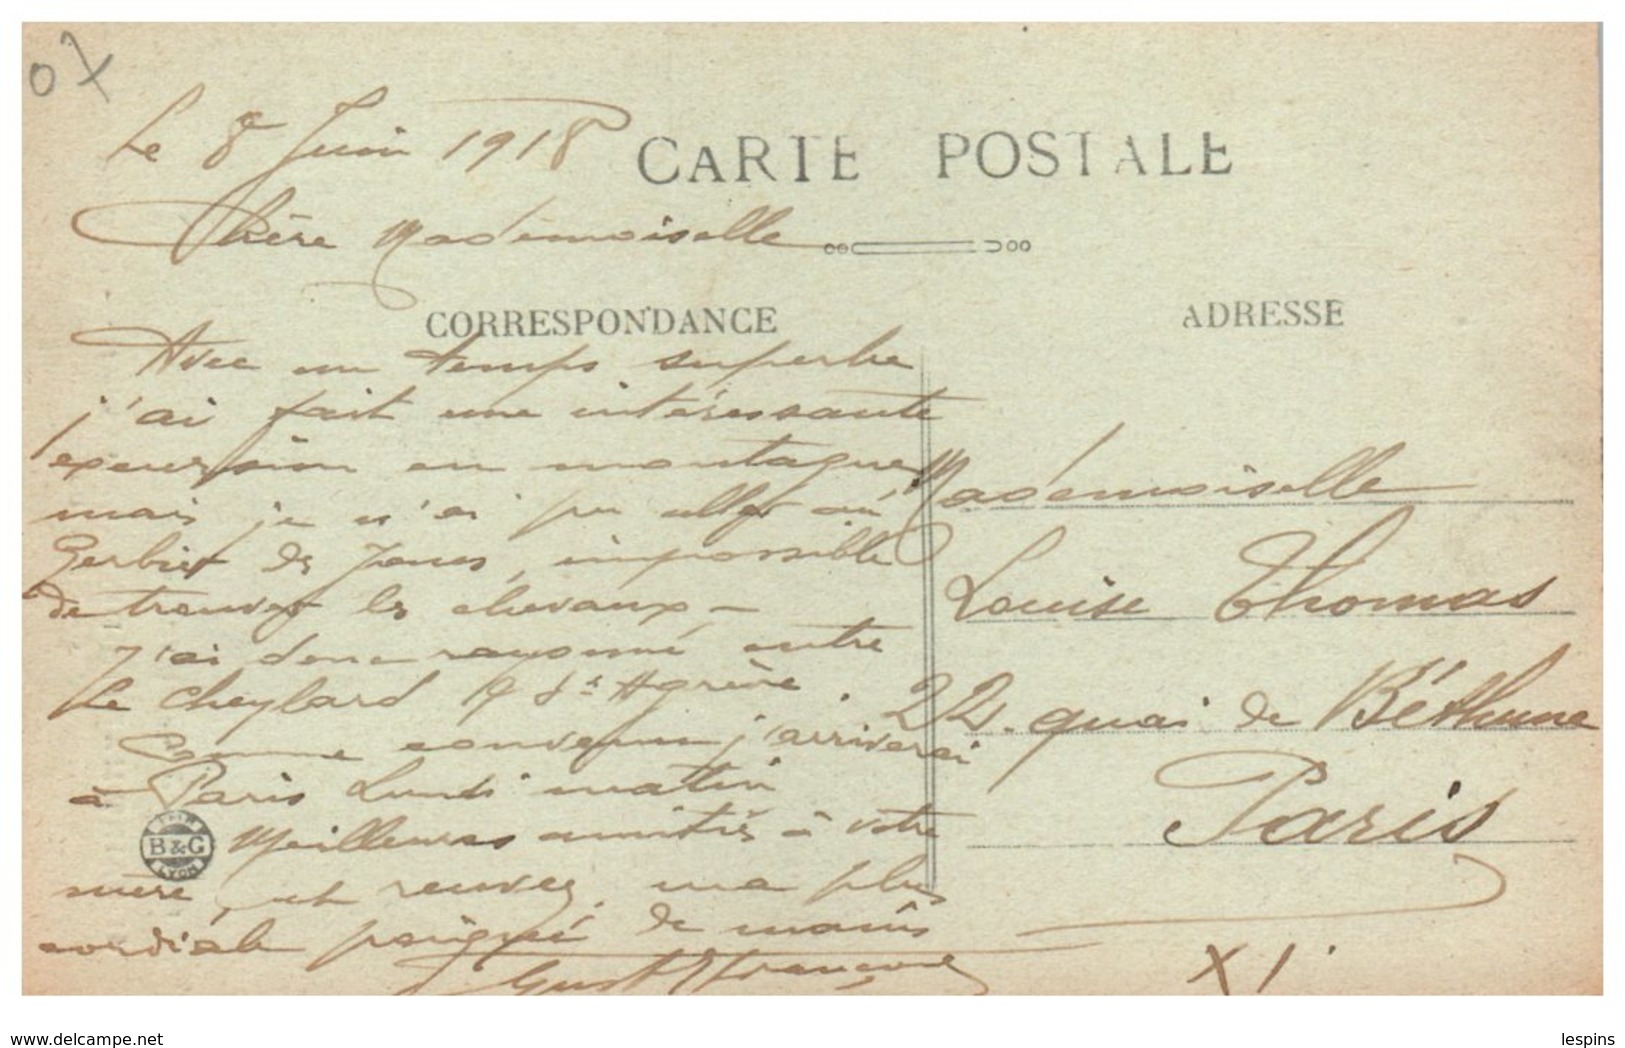 07
Le 8 Juin 1918
CARTE POSTALE
Chère Mademoiselle
CORRESPONDANCE
Avec un temps superbe
j'ai fait une intéressante
excursion en montagnes
mais je n'ai pu aller au
Gerbier des Joncs, impossible
de trouver les chevaux –
J'ai donc rayonné entre
Le Cheylard & St Agrève.
Comme convenu j'arriverai
à Paris Lundi matin
Meilleures amitiés à votre
mère, et recevez ma plus
cordiale poignée de mains
Gust
B & G
LYON
ADRESSE
Mademoiselle
Louise Thomas
22 quai de Béthune
Paris
XI
www.delcampe.net
lespins